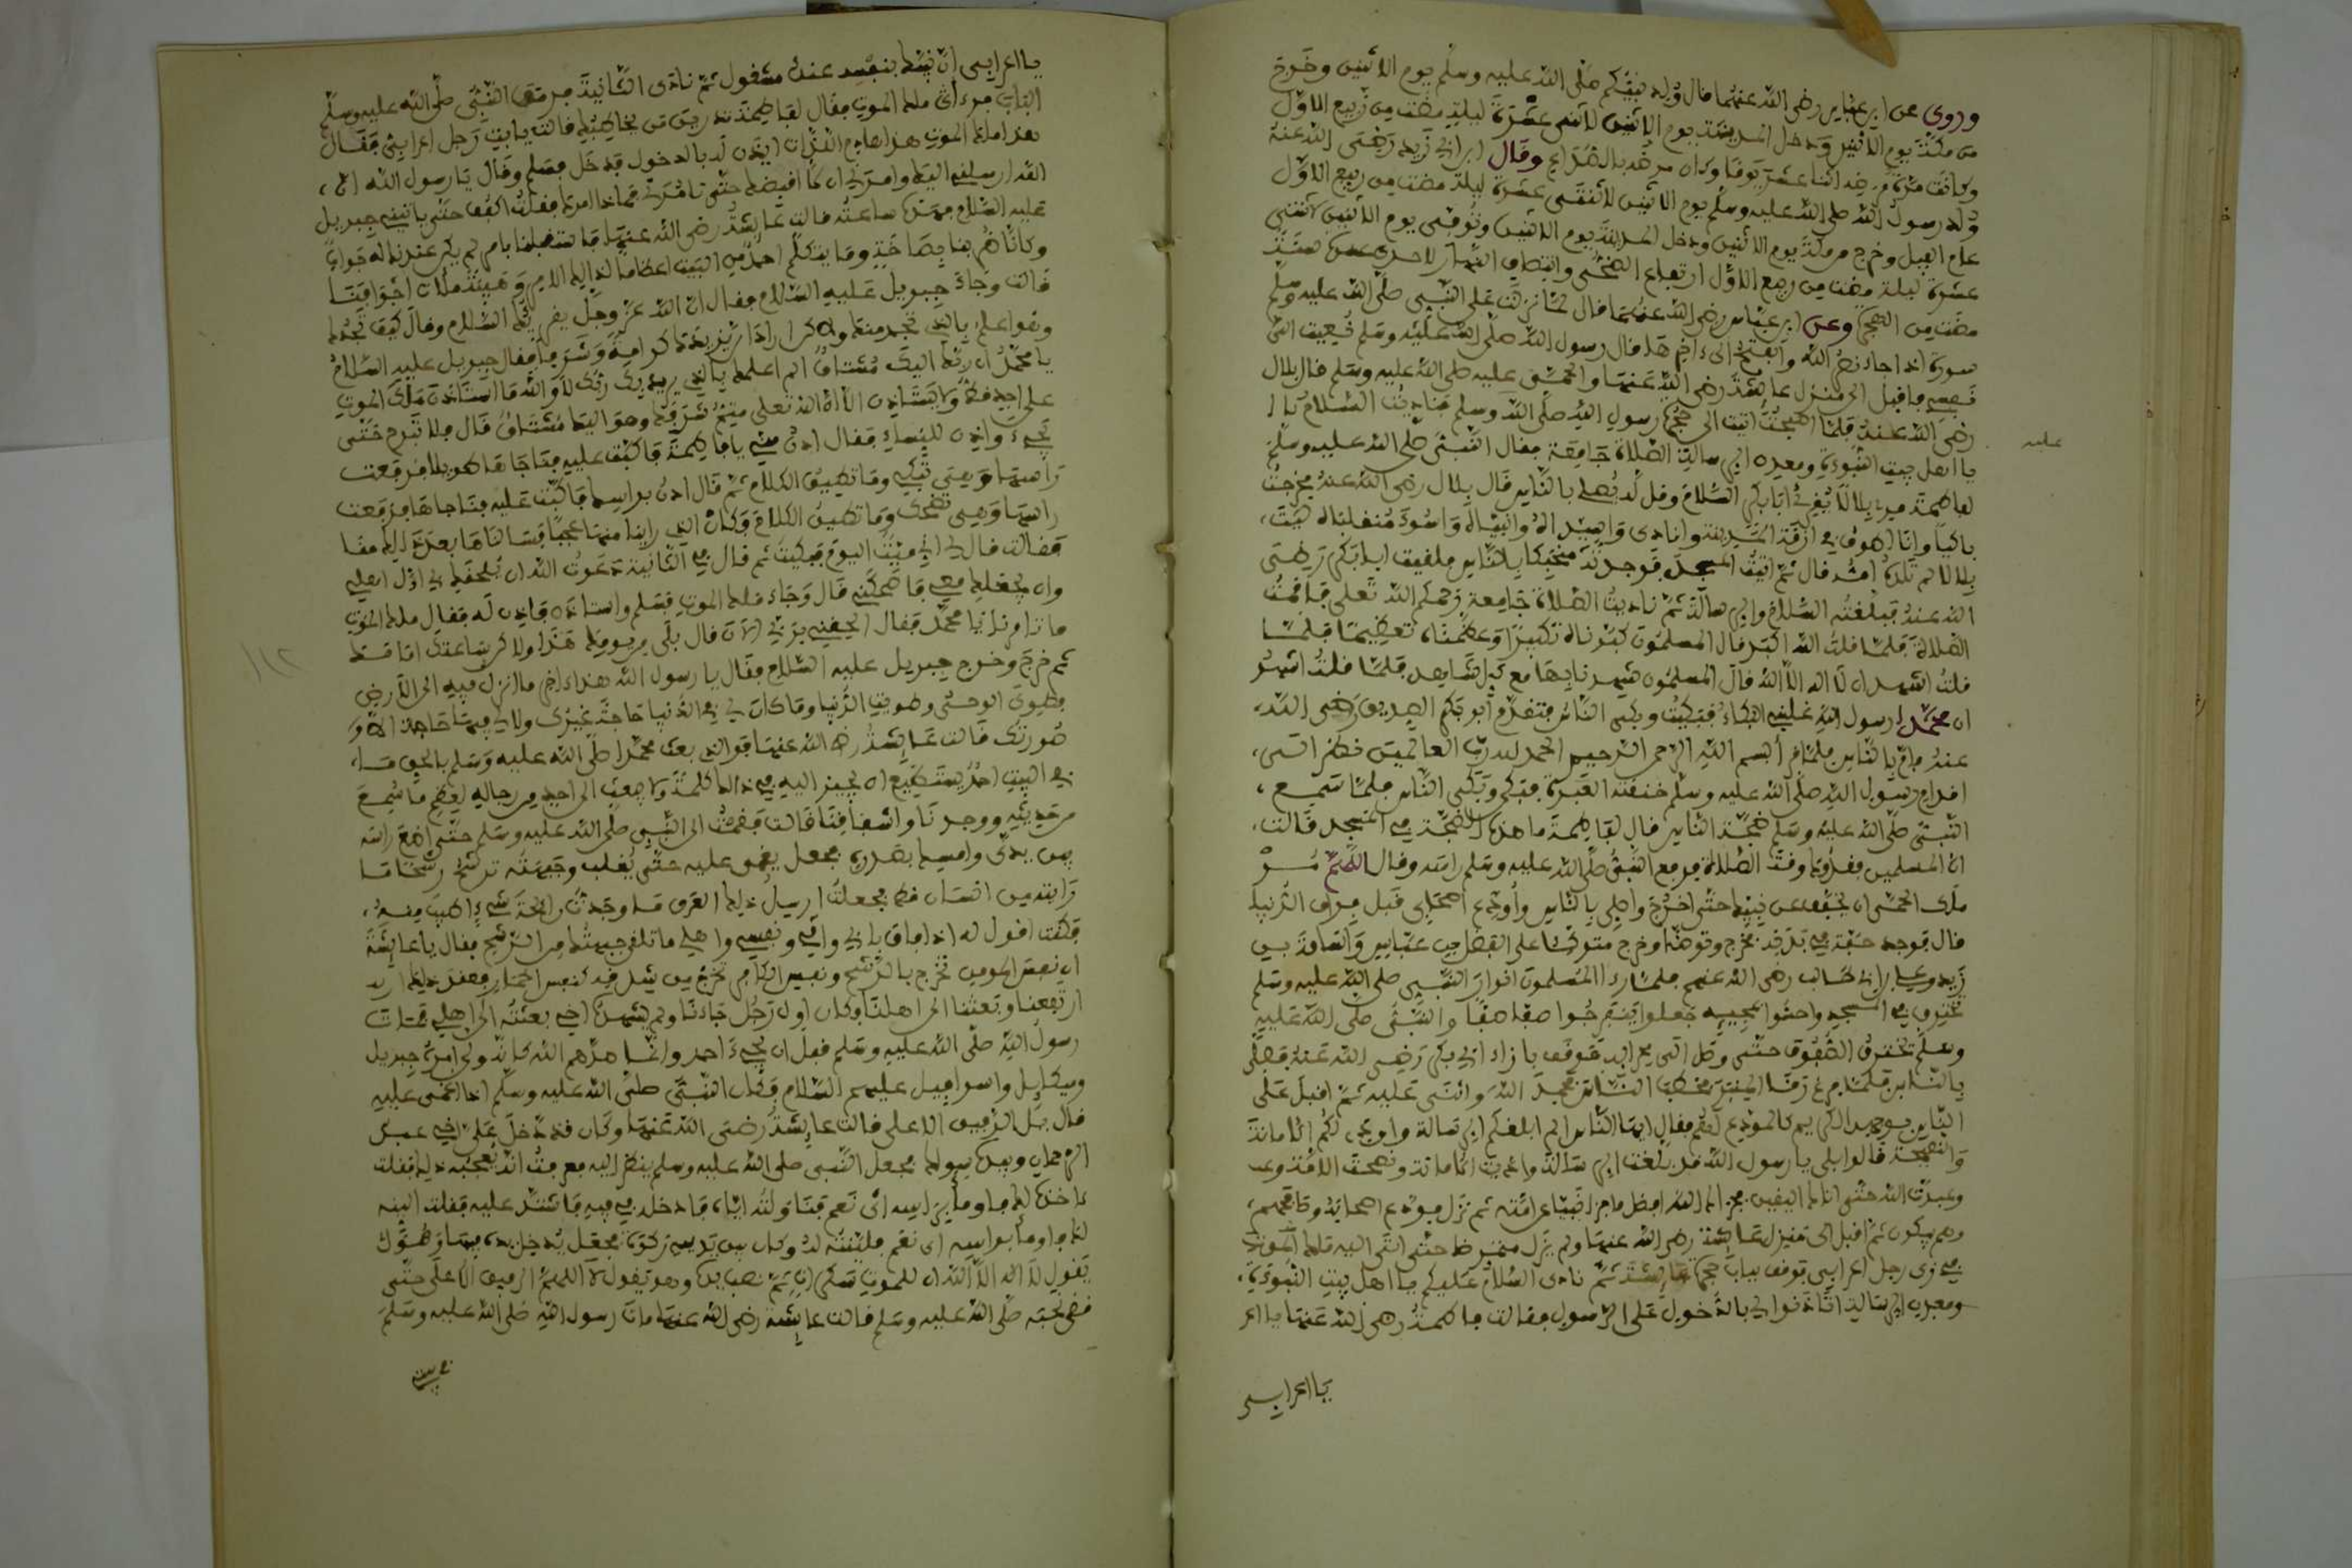 وروى عن ابن عباس رضي الله عنهما قال وُلد نبيّكم صلى الله عليه وسلم يوم الاثنين وخرج
من مكة يوم الاثنين ودخل المدينة يوم الاثنين لاثنى عشرة ليلة مضت من ربيع الاوّل
وكانت مدّة مرضه اثنا عشر يوما وكان مرضه بالصّداع وقال ابن ابي زيد رضي الله عنه
وُلد رسول الله صلى الله عليه وسلم يوم الاثنين لاثنتى عشرة ليلة مضت من ربيع الاوّل
عام الفيل وخرج من مكة يوم الاثنين ودخل المدينة يوم الاثنين وتُوفى يوم الاثنين لاثنتى
عشرة ليلة مضت من ربيع الاوّل ارتفاع الضحى وانتصاف النهار لاحدى عشرة سنة
مضت من الهجرة وعن ابن عباس رضي الله عنهما قال لمّا نزلت على النّبي صلى الله عليه وسلم
سورة اذا جاء نصر الله والفتح الى ءاخرها قال رسول الله صلى الله عليه وسلم نُعيت اليّ
نفسي فاقبل الى منزل عائشة رضي الله عنها والحمى عليه صلى الله عليه وسلم قال بلال
رضي الله عنه فلمّا اصبحت اتيت الى حجرة رسول الله صلى الله وسلم فناديت السّلام
عليه
يا اهل بيت النبوءة ومعدن الرسالة الصلاة جامعة فقال النبي صلى الله عليه وسلم
لفاطمة مري بلالا يُقرئ ابا بكر السّلام وقل له يُصلي بالنّاس قال بلال رضي الله عنه فخرجت
باكيا وانا اطوف في ازقة المدينة وانادى واسيداه وانبياه واسوء منقلباه ليت
بلالا لم تلده امّه قال ثم اتيت المسجد فوجدته مختبكا بالناس فلقيت ابا بكر رضي
الله عنه فبلّغته السّلام والرسالة ثم ناديت الصلاة جامعة رحمكم الله تعلى فاقمت
الصلاة فلمّا قلت الله اكبر قال المسلمون كبّرناه تكبيرا وعظّمناه تعظيما فلمّا
قلت اشهد ان لا اله الا الله قال المسلمون شهدنا بها مع كل شاهد فلمّا قلت اشهد
ان محمّدا رسول الله غلبني البكاء فبكيت وبكى النّاس فتقدّم أبو بكر الصديق رضي الله
عنه فام بالناس فلمّا قرأ بسم الله الرحمن الرحيم الحمد لله ربّ العالمين فنظر الى
اقدام رسول الله صلى الله عليه وسلم خنقته العبرة فبكى وبكى النّاس فلمّا سمع
النبي صلى الله عليه وسلم ضجّة النّاس قال لفاطمة ما هذه الضجّة في المسجد قالت
انّ المسلمين فقدوك وقت الصّلاة فرفع النبي صلى الله عليه وسلم راسه وقال اللهمّ مُرْ
ملك الحمى ان يخفف عن نبيّك حتى اخرج واصلي بالنّاس وأُودّع اصحابي قبل فراق الدّنيا
قال فوجد خفّة في بدنه فخرج وتوضّا وخرج متوكّئا على الفضل بن عبّاس واسامة بن
زيد وعلي بن ابي طالب رضي الله عنهم فلمّا رءا المسلمون انوار النّبي صلى الله عليه وسلم
تخترق في المسجد واحسّوا بمجيئه جعلوا ينفرجوا صفّا صفّا والنّبي صلى الله عليه
وسلم تخترق الصّفوف حتى وصل الى محرابه فوقف بازاء ابي بكر رضي الله عنه فصلّى
بالنّاس فلمّا فرغ رقا المنبر فخطب النّاس فحمد الله واثنى عليه ثم اقبل على
النّاس بوجهه الكريم كالمودّع لهم فقال ايها النّاس الم ابلّغكم الرسالة واودي لكم الامانة
والنصيحة قالوا بلى يا رسول الله قد بلّغت الرسالة وادّيت الامانة ونصحت الامّة وعبـ
وعبدت الله حتى اتاك اليقين فجزاك الله افضل ما جزا نبيّا عن امّته ثم نزل فودّع اصحابه وصافحهم
وهم يبكون ثم اقبل الى منزل عائشة رضي الله عنها ولم يزل ممرضا حتى اتى اليه ملك الموت
في زيّ رجل اعرابي فوقف بباب حجرة عائشة ثم نادى السّلام عليكم يا اهل بيت النبوءة
ومعدن الرسالة اتاذنوا لي بالدّخول على الرسول فقالت فاطمة رضي الله عنها يا اعر
يا اعرابي
يا اعرابي انّ نبيّنا بنفسه عنك مشغول ثم نادى الثانية فرمق النّبي صلى الله عليه وسلم
الباب فرءا ملك الموت فقال لفاطمة تدرين من تخاطبيه قالت يا ابت رجل اعرابي فقال
هذا ملك الموت هذا هادم اللذات ايذن له بالدخول فدخل فسلم وقال يا رسول الله انّ
الله ارسلني اليك وامرني ان لا اقبضك حتى تامرني فماذا امرك فقلت اكفف حتى ياتيني جبريل
عليه السّلام فهذه ساعته قالت عائشة رضي الله عنها فاستقبلنا بامر لم يكن عندنا له جواب
وكانّا ضربنا بصاخة وما يتكلّم احد من البيت اعظاما لذالك الامر وهيبة ملات اجوافنا
قالت وجاء جبريل عليه السّلام فقال انّ الله عزّ وجلّ يقرئك السّلام وقال كيف تجدك
وهو اعلم بالذي تجد منك ولاكن اراد ان يزيدك كرامة وشرفا فقال جبريل عليه السّلام
يا محمّد ان ربّك اليك مشتاق الم اعلمك بالذي يريد بك ربّك لا والله ما استاذن ملك الموت
على احد قطّ ولا يستاذن الا انّ الله تعلى متمّ شرفك وهو اليك مشتاق قال فلا تبرح حتى
يجيء واذن للنساء فقال ادن منّي يا فاطمة فاكبّت عليه فناجاها طويلا فرفعت
راسها وهي تبكي وما تطيق الكلام ثم قال ادن براسك فاكبّت عليه فناجاها فرفعت
راسها وهي تضحك وما تطيق الكلام وكان الذي راينا منها عجبا فسالناها بعد ذالك
فقالت قال لي اني ميّت اليوم فبكيت ثم قال في الثانية دعوت الله ان يُلحقك بي اوّل اهلي
وان يجعلك معي فاضحكني قال وجاء ملك الموت فسلّم واستاذن فاذن له فقال ملك الموت
ما تامرنا يا محمّد فقال الحقني بربّي الان قال بلى من يومك هذا ولاكن ساعتك امامك
ثم خرج وخرج جبريل عليه السّلام فقال يا رسول الله هذا ءاخر ما انزل فيه الى الارض
طوي الوحي وطويت الدّنيا وما كان لي في الدّنيا حاجة غيرك ولا لي فيها حاجة الا
حضورك قالت عائشة رضي الله عنها فوالذي بعث محمّدا صلى الله عليه وسلم بالحق ما
في البيت احد يستطيع ان يحير اليه في ذالك كلمة ولا يبعث الى احد من رجاله لعظم ما سمع
من حديثه ووجدنا واشفاقنا قالت فقمت الى النّبي صلى الله عليه وسلم حتى اضع راسه
بين يديّ وامسك بصدره فجعل يغمى عليه حتى يغلب وجبهته ترشح رشحا ما
رايته من انسان قطّ فجعلت اسيل ذالك العرق فما وجدت رائحة شيء اطيب منه
فكنت اقول له اذا افاق بابي وامّي ونفسي واهلي ما تلقى جبهتك من الرّشح فقال يا عائشة
ان نفس المومن تخرج بالرّشح ونفس الكافر تخرج من شدقه كنفس الحمار فعند ذالك
ارتفعنا وبعثنا الى اهلنا وكان اول رجل جاءنا ولم يشهده اخي بعثته الى اهلي فمات
رسول الله صلى الله عليه وسلم قبل ان يجيء احد وانّما صدّهم الله لانّه ولي امره جبريل
وميكايل واسرافيل عليهم السّلام وكان النّبي صلى الله عليه وسلم اذا اغمي عليه
قال بل الرفيق الاعلى قالت عائشة رضي الله عنها وكان قد دخل عليّ اخي عبد
الرحمان وبيده سواك فجعل النّبي صلى الله عليه وسلم ينظر اليه فعرفت انّه يعجبه ذالك فقلت
ءاخذه لك فاومأ براسه اي نعم فناولته ايّاه فادخله في فيه فاشتدّ عليه فقلت الينه
لك فاومأ براسه اي نعم فليّنته له وكان بين يديه ركوة فجعل يدخل يده فيها وهو
يقول لا اله الا الله ان للموت سكرات ثم نصب يده وهو يقول اللهمّ الرفيق الاعلى حتى
قضى نحبه صلى الله عليه وسلم قالت عائشة رضي الله عنها مات رسول الله صلى الله عليه وسلم
في بيتي
١١٢